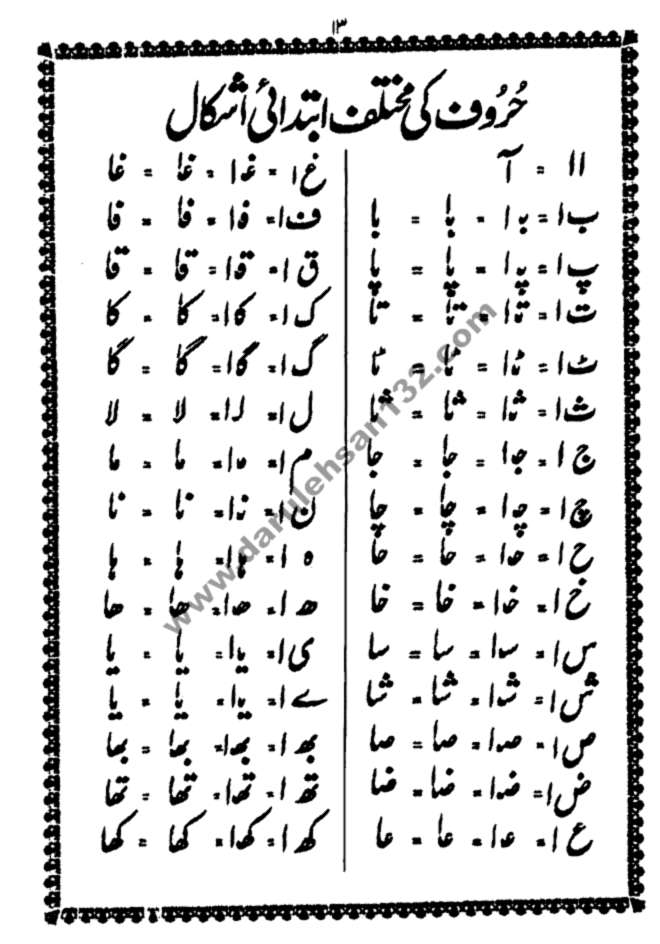 ۱۳
حُرُوف کی مختلف ابتدائی اشکال
ا ا = آ
ب ا = بـ ا = با = با
پ ا = پـ ا = پا = پا
ت ا = تـ ا = تا = تا
ٹ ا = ٹـ ا = ٹا = ٹا
ث ا = ثـ ا = ثا = ثا
ج ا = جـ ا = جا = جا
چ ا = چـ ا = چا = چا
ح ا = حـ ا = حا = حا
خ ا = خـ ا = خا = خا
س ا = سـ ا = سا = سا
ش ا = شـ ا = شا = شا
ص ا = صـ ا = صا = صا
ض ا = ضـ ا = ضا = ضا
ع ا = عـ ا = عا = عا
غ ا = غـ ا = غا = غا
ف ا = فـ ا = فا = فا
ق ا = قـ ا = قا = قا
ک ا = کـ ا = کا = کا
گ ا = گـ ا = گا = گا
ل ا = لـ ا = لا = لا
م ا = مـ ا = ما = ما
ن ا = نـ ا = نا = نا
ہ ا = ہـ ا = ہا = ہا
ھ ا = ھـ ا = ھا = ھا
ی ا = یـ ا = یا = یا
ے ا = یـ ا = یا = یا
بھ ا = بھـ ا = بھا = بھا
تھ ا = تھـ ا = تھا = تھا
کھ ا = کھـ ا = کھا = کھا
www.darulehsan132.com